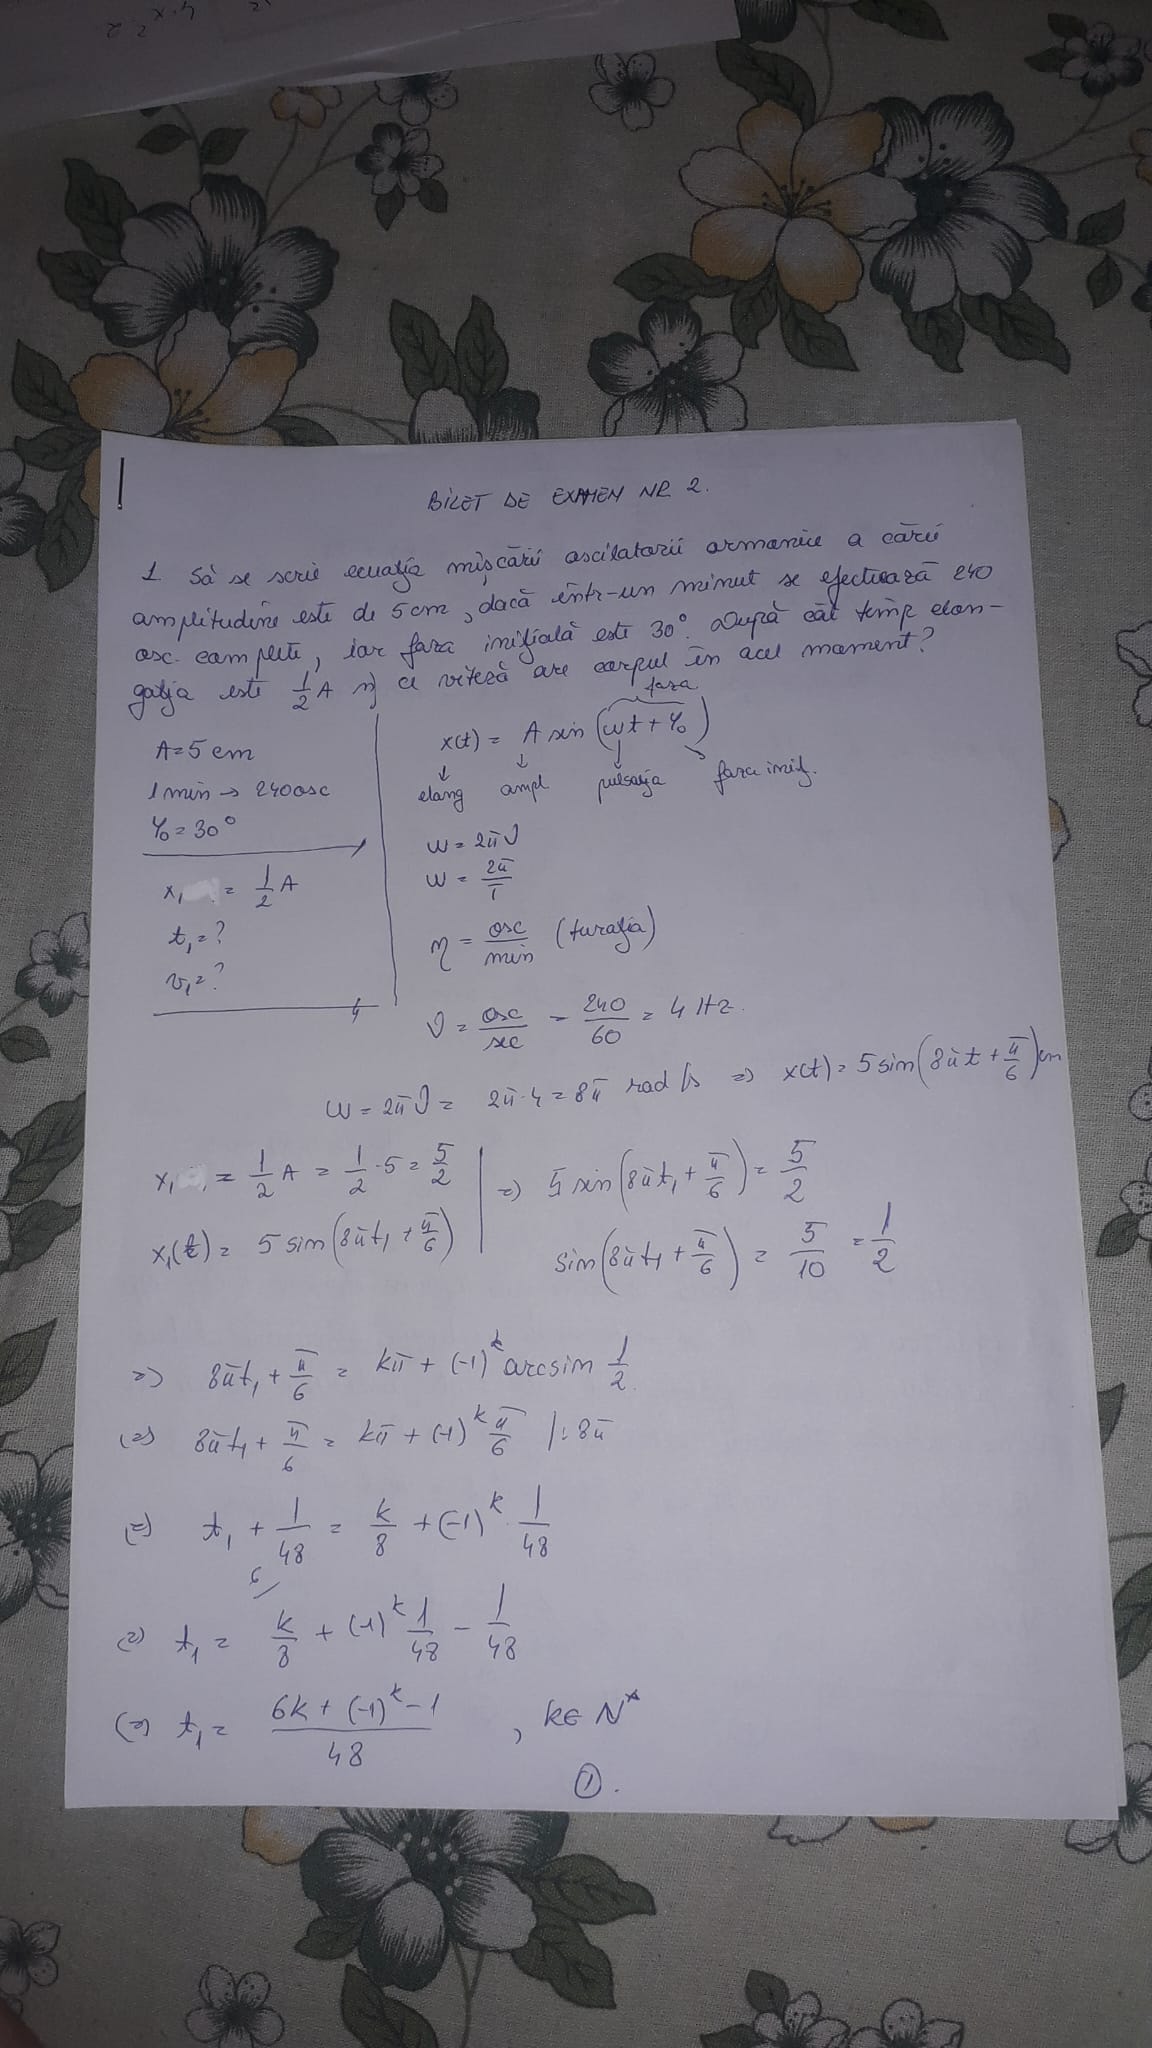 BILET DE EXAMEN NR 2.
1 Să se scrie ecuația mișcării oscilatorii armonice a cărei
amplitudine este de 5cm, dacă într-un minut se efectuează 240
osc. complete, iar faza inițială este 30°. După cât timp elon-
gația este 1/2 A și ce viteză are corpul în acel moment?
A=5 cm
1 min → 240osc
φ₀ = 30°
x₁ = 1/2 A
t₁=?
v₁=?
faza
x(t) = A sin (ωt + φ₀)
elong ampl pulsația faza iniț.
ω = 2πν
ω = 2π/T
η = osc/min (turația)
ν = osc/sec = 240/60 = 4 Hz.
ω = 2πν = 2π·4 = 8π rad/s => x(t) = 5 sin(8πt + π/6)cm
x₁ = 1/2 A = 1/2 ·5 = 5/2
x₁(t) = 5 sin(8πt₁ + π/6)
=> 5 sin(8πt₁ + π/6) = 5/2
sin(8πt₁ + π/6) = 5/10 = 1/2
=> 8πt₁ + π/6 = kπ + (-1)ᵏ arcsin 1/2
(=) 8πt₁ + π/6 = kπ + (-1)ᵏ π/6 |:8π
(=) t₁ + 1/48 = k/8 + (-1)ᵏ · 1/48
6/
(=) t₁ = k/8 + (-1)ᵏ 1/48 - 1/48
(=) t₁ = (6k + (-1)ᵏ - 1)/48 , k∈ N*
①.